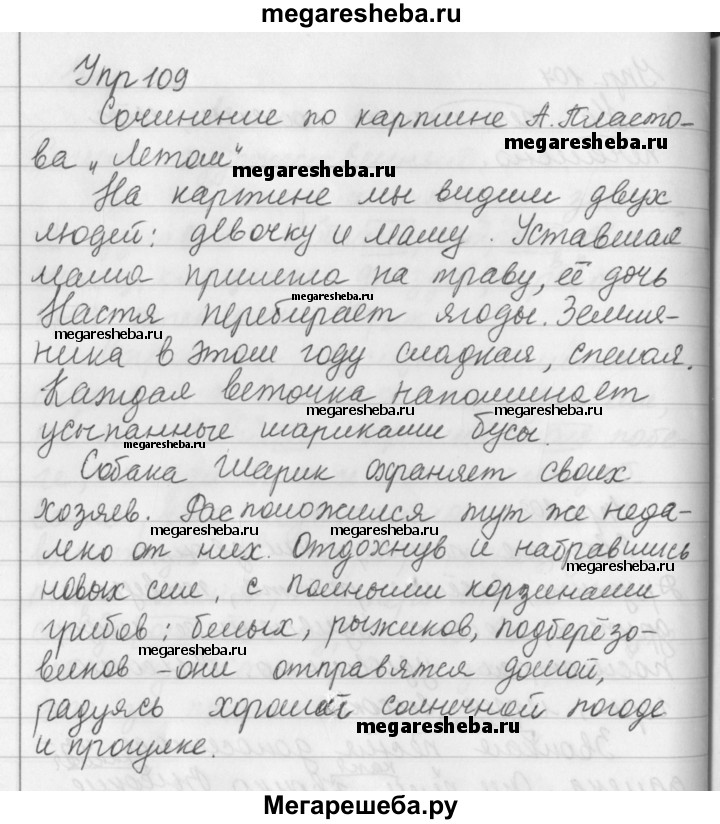 megaresheba.ru
Упр 109
Сочинение по картине А. Пласто-
megaresheba.ru
ва „Летом“
megaresheba.ru
На картине мы видим двух
людей: девочку и маму. Уставшая
мама прилегла на траву, её дочь
megaresheba.ru
Настя перебирает ягоды. Земля-
megaresheba.ru
ника в этом году сладкая, спелая.
Каждая веточка напоминает
megaresheba.ru megaresheba.ru
усыпанные шариками бусы.
megaresheba.ru
Собака Шарик охраняет своих
хозяев. Расположился тут же неда-
megaresheba.ru megaresheba.ru
леко от них. Отдохнув и набравшись
megaresheba.ru
новых сил, с полными корзинами
грибов: белых, рыжиков, подберёзо-
megaresheba.ru
виков – они отправятся домой,
радуясь хорошей солнечной погоде
megaresheba.ru
и прогулке.
Мегарешеба.ру